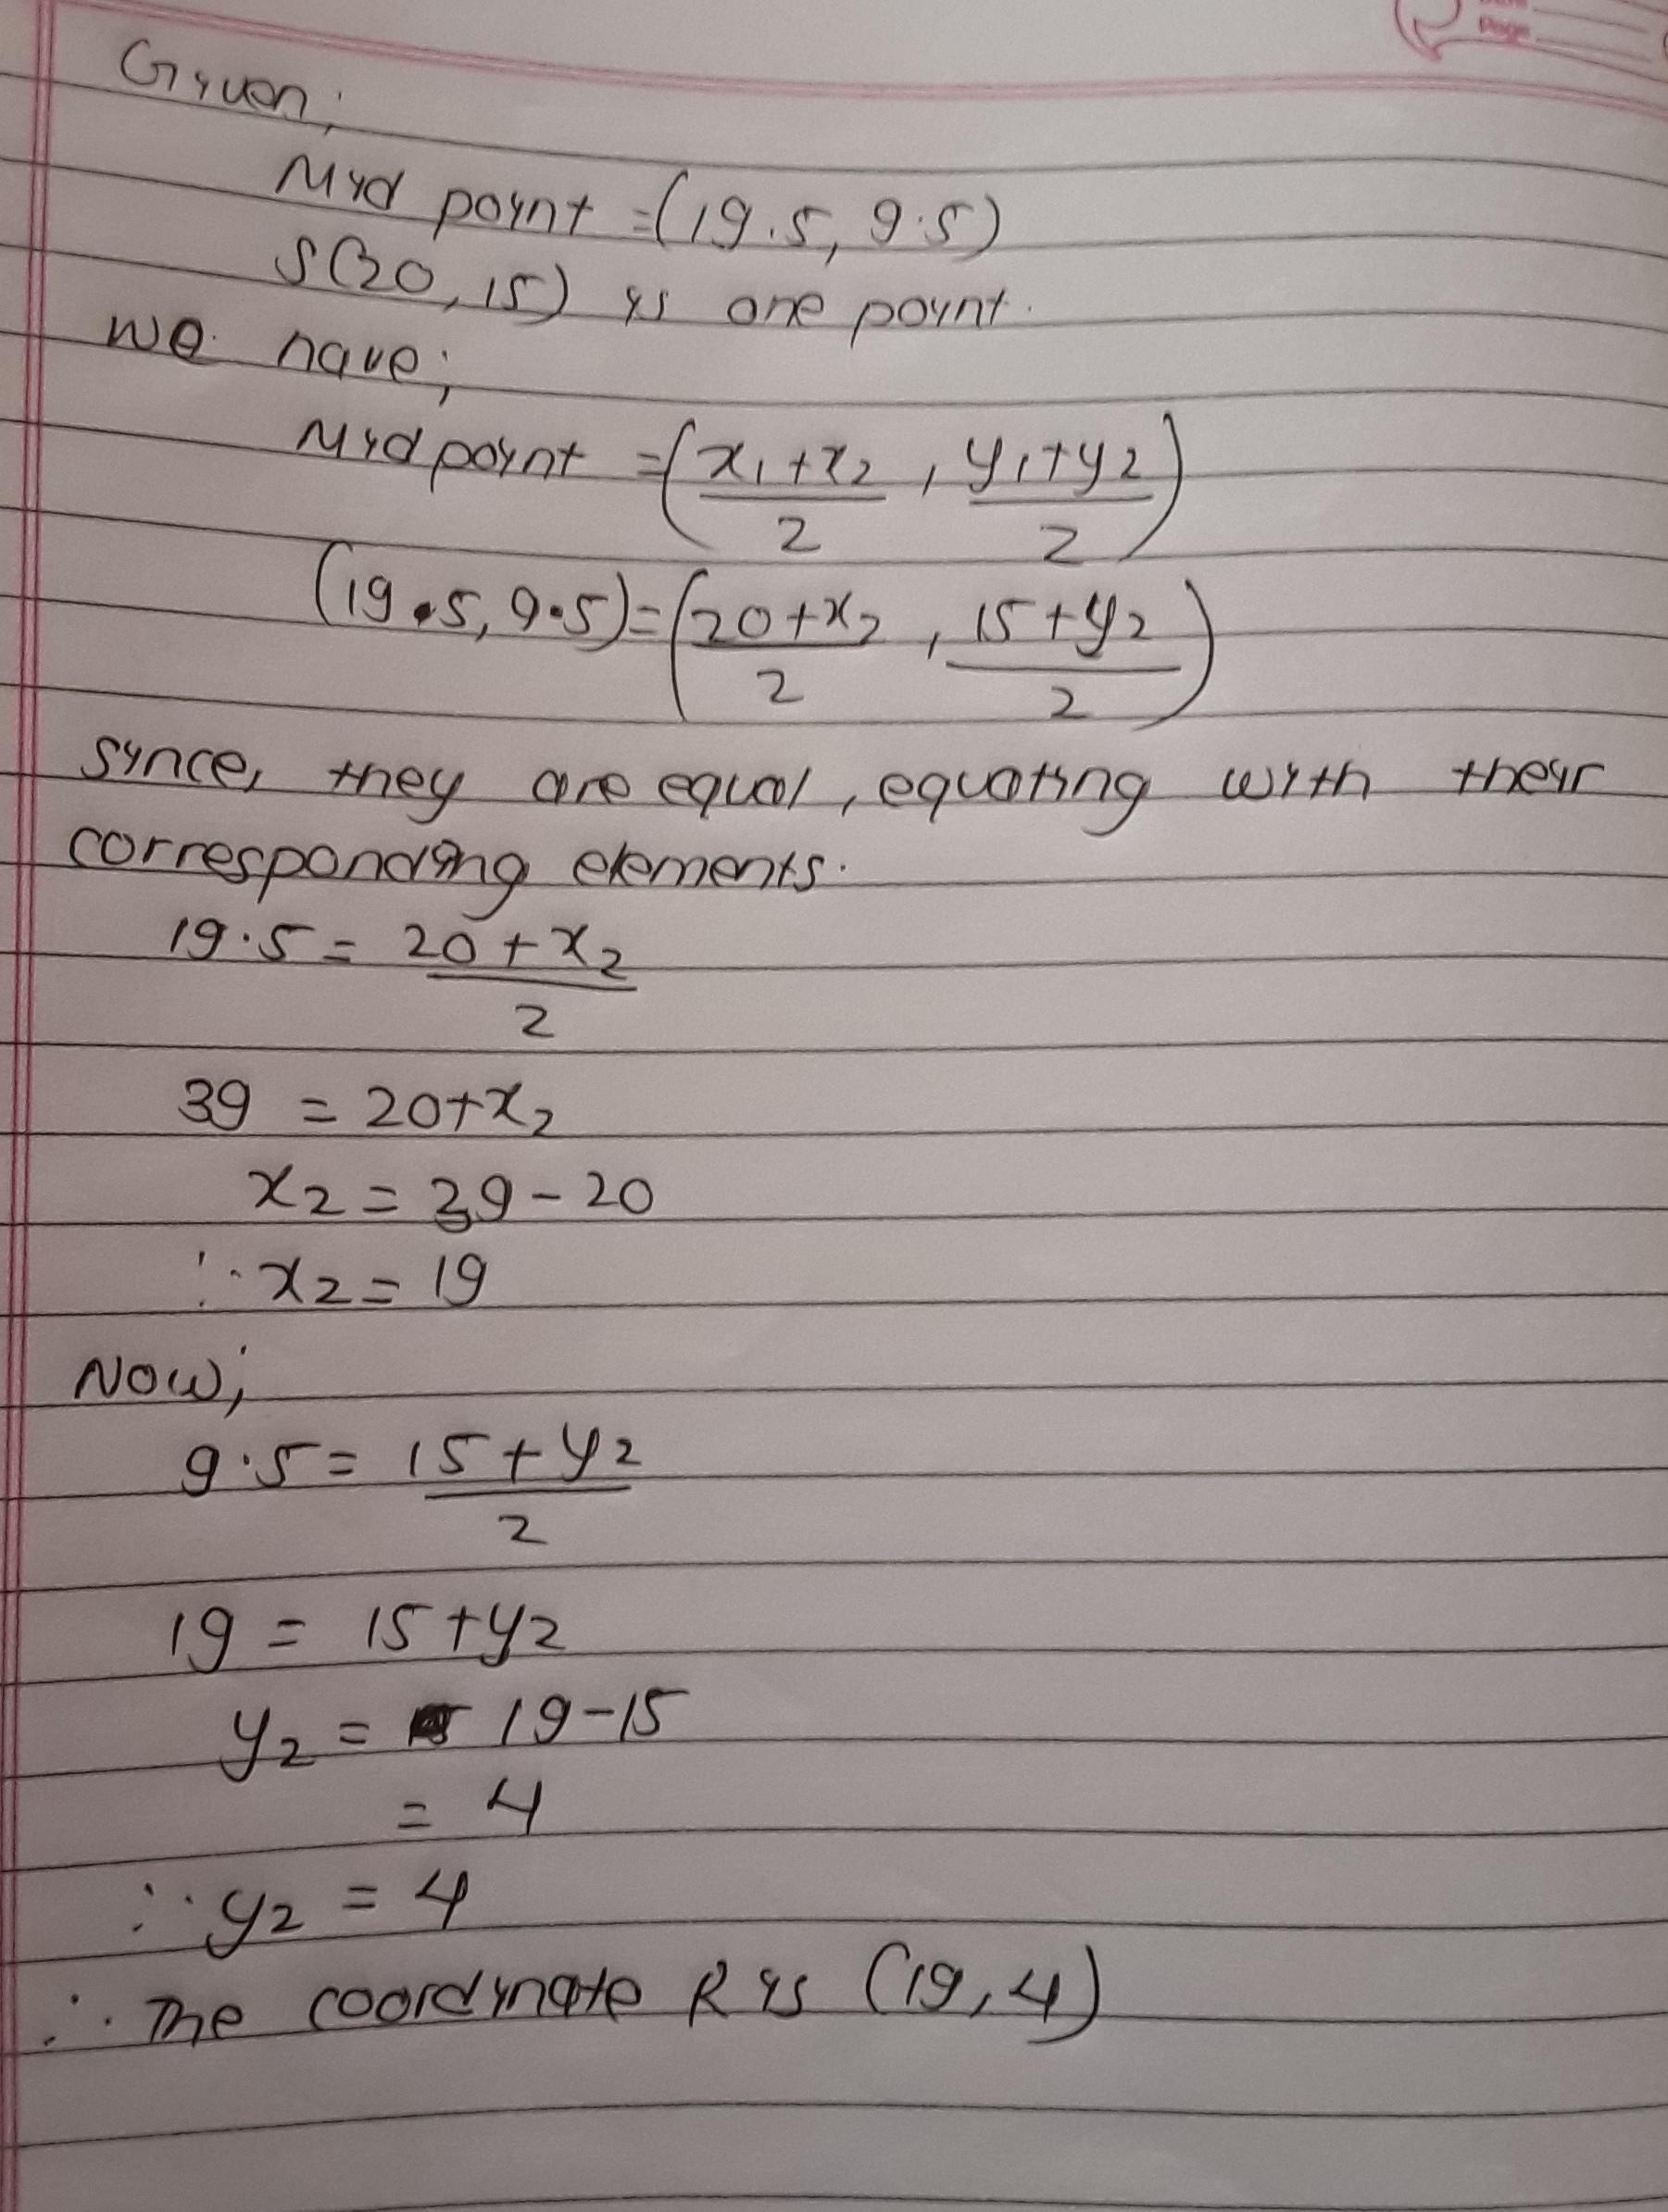 Page
Given;
Mid point = (19.5, 9.5)
S(20, 15) is one point.
We have;
Midpoint = (x₁+x₂/2, y₁+y₂/2)
(19.5, 9.5) = (20+x₂/2, 15+y₂/2)
since, they are equal, equating with their
corresponding elements.
19.5 = 20+x₂/2
39 = 20+x₂
x₂ = 39-20
∴ x₂ = 19
Now;
9.5 = 15+y₂/2
19 = 15+y₂
y₂ = 19-15
= 4
∴ y₂ = 4
∴ The coordinate R is (19, 4)